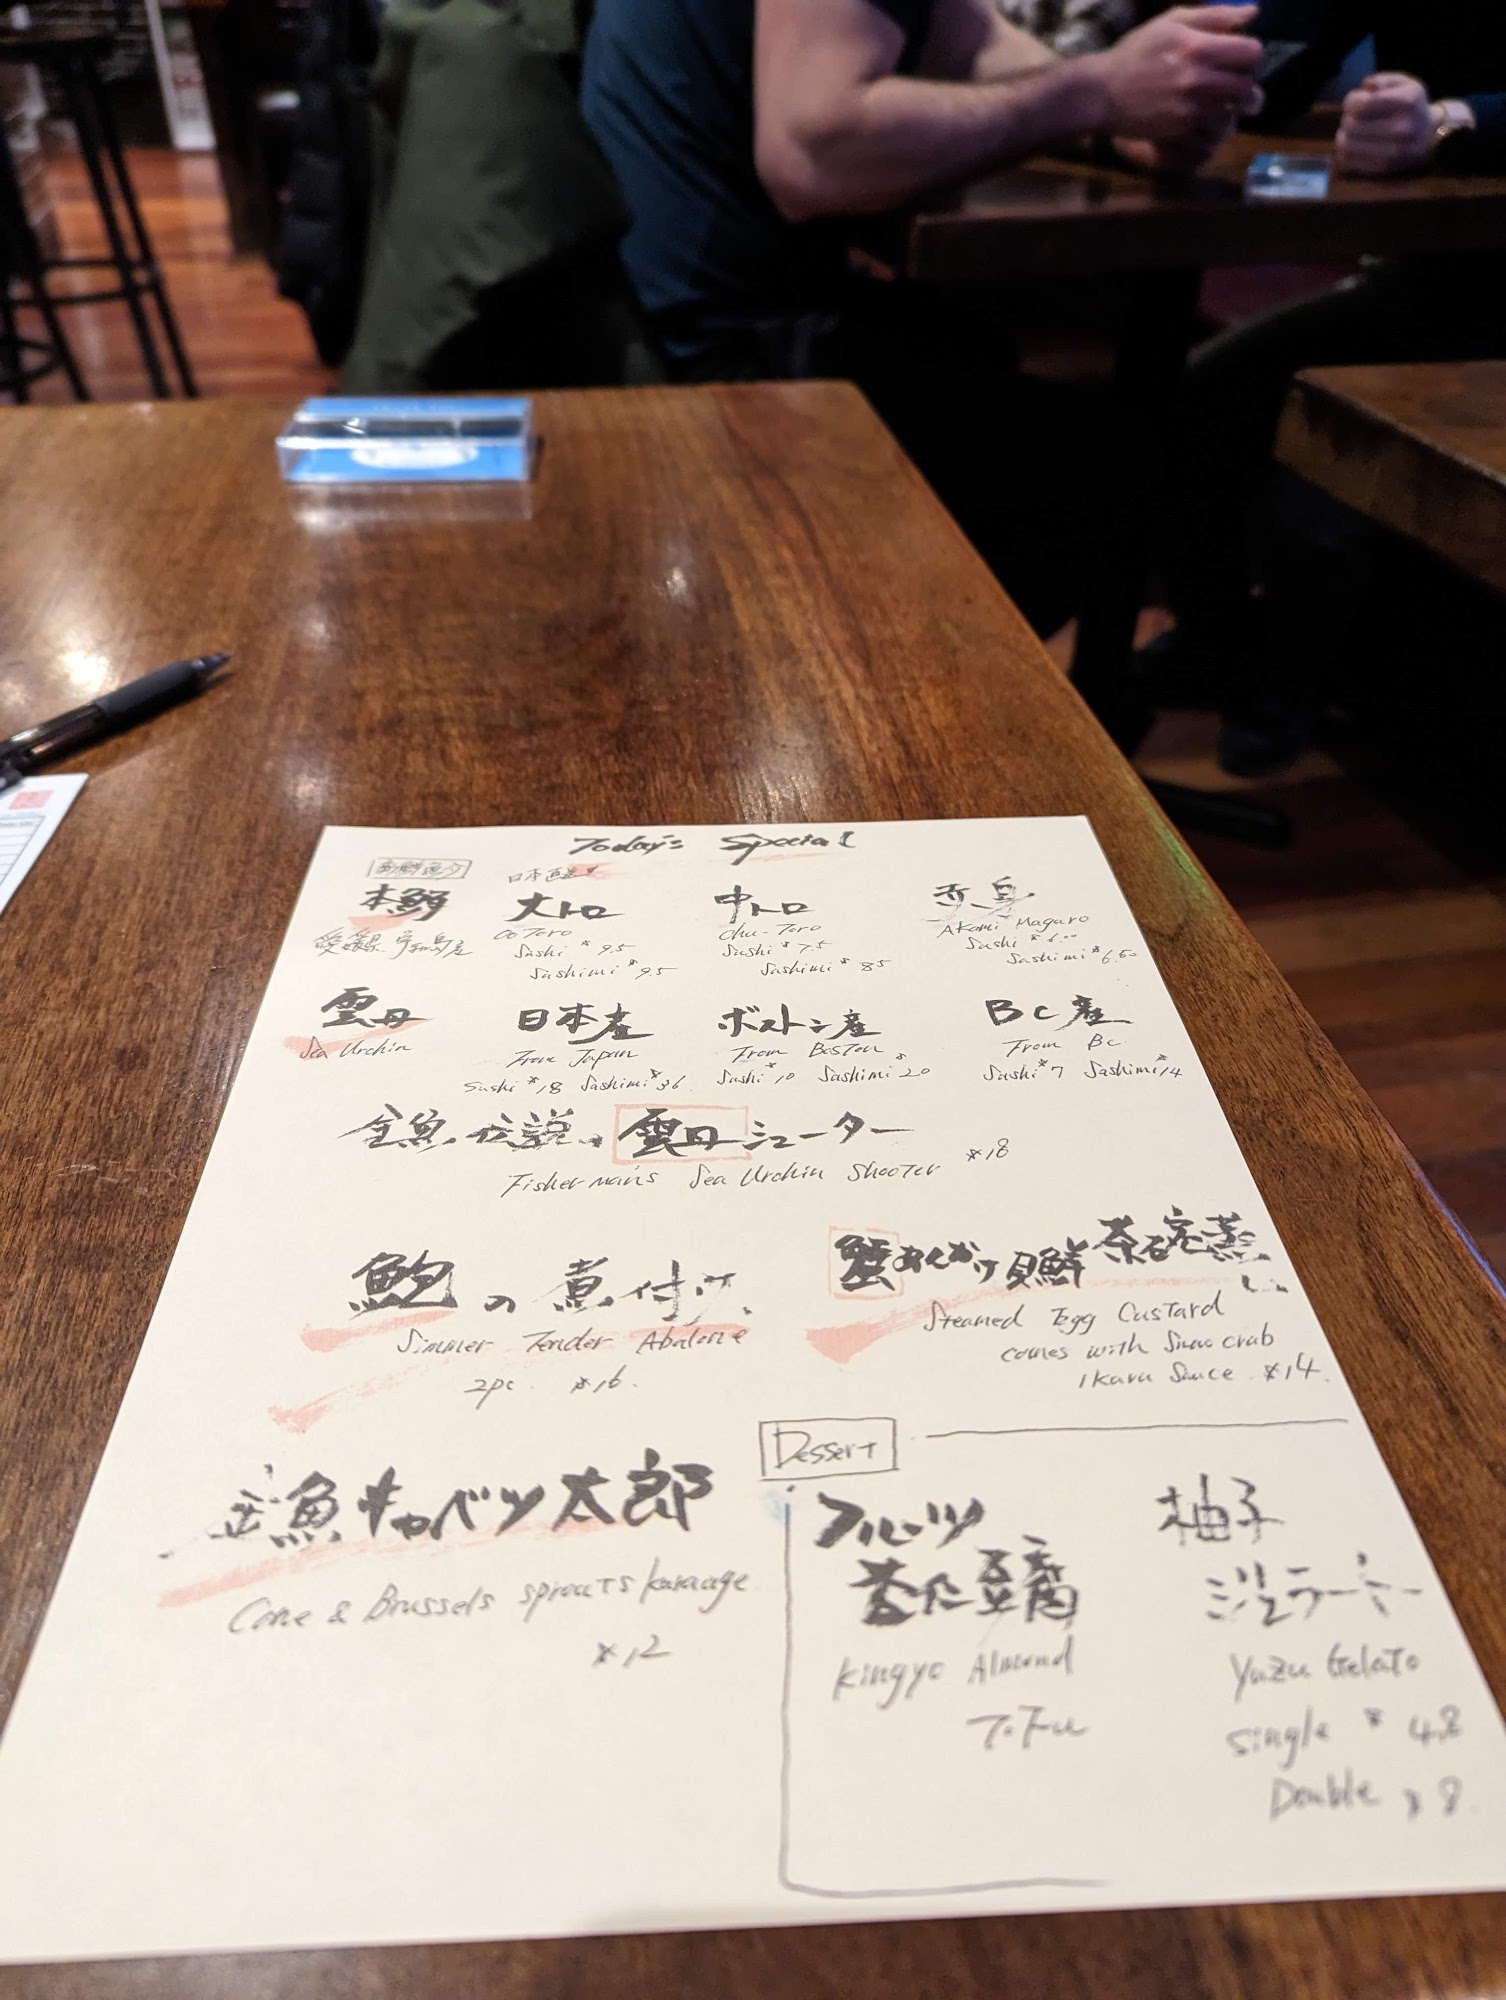 Today's Special
本鮪
愛媛県 宇和島産
日本直送!!
大トロ
Oo Toro
Sushi $9.5
Sashimi $9.5
中トロ
Chu-Toro
Sushi $7.5
Sashimi $8.5
赤身
Akami Maguro
Sushi $6.00
Sashimi $6.50
雲丹
Sea Urchin
日本産
From Japan
Sushi $18 Sashimi $36
ボストン産
From Boston
Sushi $10 Sashimi $20
BC産
From BC
Sushi $7 Sashimi $14
金魚、伝説の雲丹シューター
Fisherman's Sea Urchin Shooter $18
鮑の煮付け
Simmer Tender Abalone
2pc. $16.
蟹あんかけ 貝鮮 茶碗蒸し
Steamed Egg Custard
comes with Snow crab
Ikura Sauce $14.
金魚キャベツ太郎
Cone & Brussels sprouts karaage
$12
Dessert
フルーツ
杏仁豆腐
Kingyo Almond
Tofu
柚子
ジェラート
Yuzu Gelato
single $4.8
Double $8.